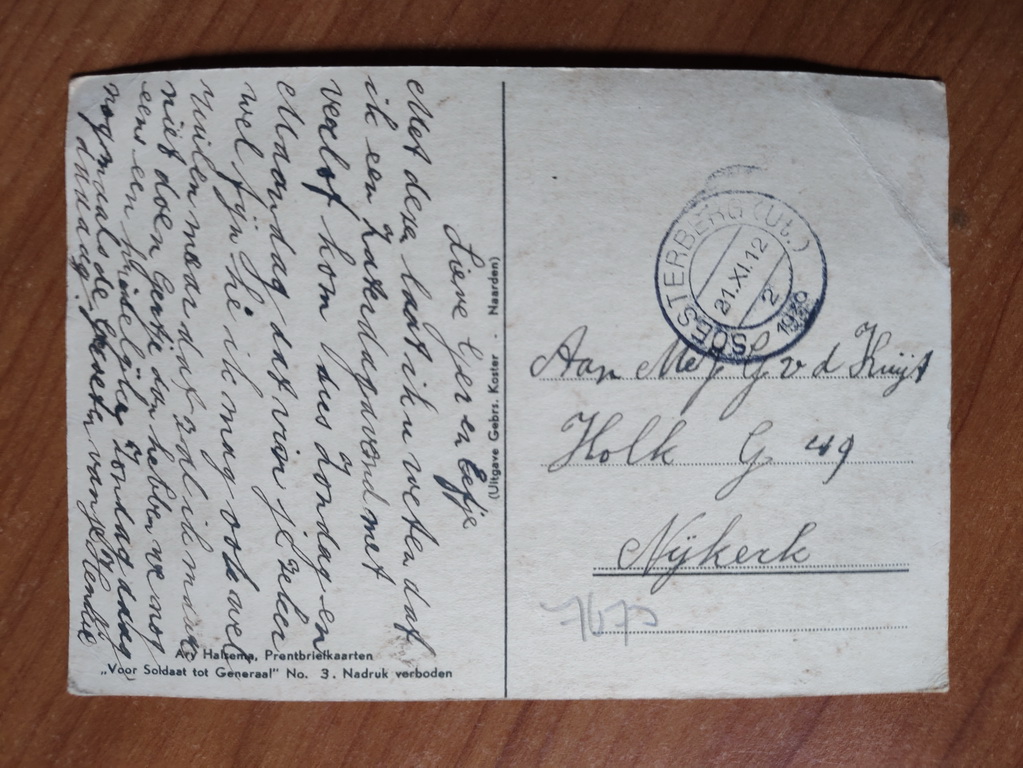 Lieve Ger en Eefje
Met deze laat ik u weten dat
ik een Zaterdagavond met
verlof kom dus Zondag en
Maandag dat vin je zeker
wel fijn hé ik mag ook wel
ruilen maar dat zal ik maar
niet doen Gertie dan hebben we nog
eens een Zondag daag
nogmaals de groeten van je Hendrik
daaaag
(Uitgave Gebrs. Koster - Naarden)
Ary Halsema, Prentbriefkaarten
„Voor Soldaat tot Generaal" No. 3. Nadruk verboden
SOESTERBERG (Ut.)
21.XI.12
2
1936
Aan Mej G v d Kuijt
Holk G 49
Nijkerk